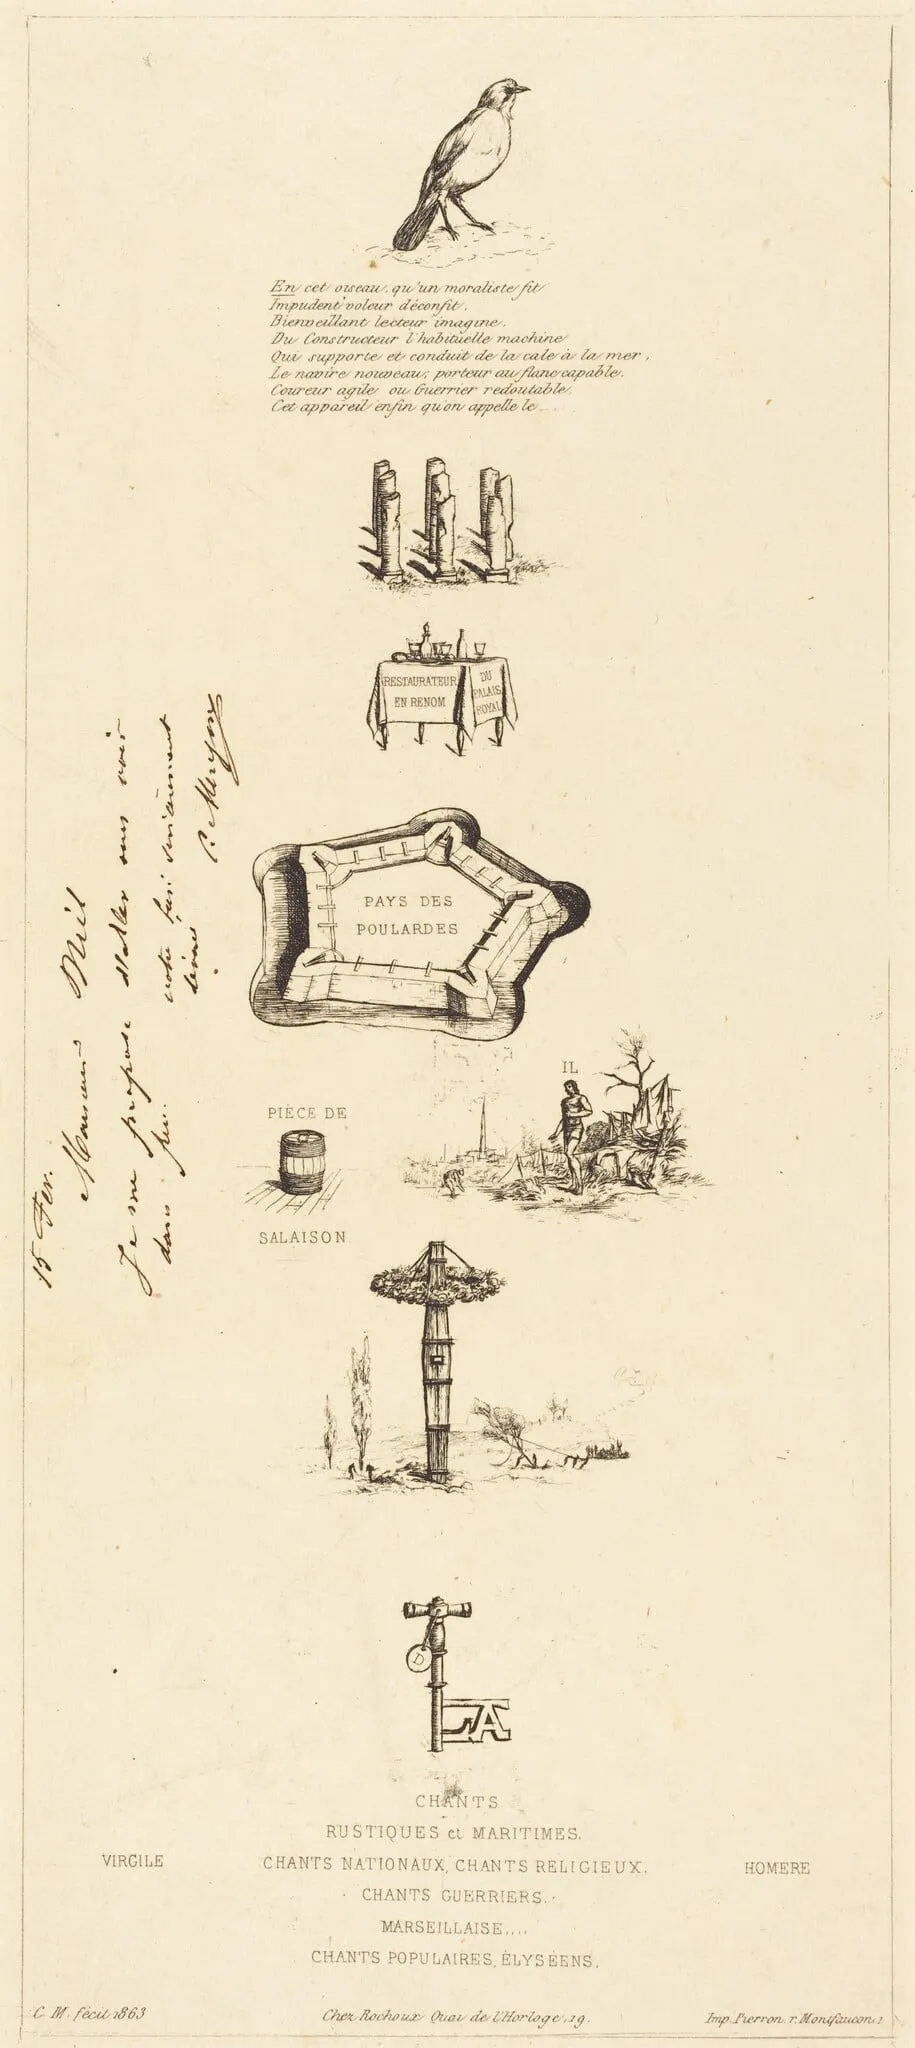 En cet oiseau, qu'un moraliste fit
Impudent voleur déconfit,
Bienveillant lecteur imagine,
Du Constructeur l'habituelle machine
Qui supporte et conduit de la cale à la mer,
Le navire nouveau; porteur au flanc capable,
Coureur agile ou Guerrier redoutable,
Cet appareil enfin qu'on appelle le....
RESTAURATEUR
EN RENOM
DU
PALAIS
ROYAL
PAYS DES
POULARDES
15 Fev.
Monsieur Niel
Je me propose d'aller vous voir
dans peu.
votre bien sincèrement
C. Meryon
IL
PIÈCE DE
SALAISON
D
LA
CHANTS
RUSTIQUES et MARITIMES.
VIRGILE
CHANTS NATIONAUX, CHANTS RELIGIEUX.
HOMERE
CHANTS GUERRIERS.
MARSEILLAISE....
CHANTS POPULAIRES, ÉLYSÉENS.
C. M. fecit 1863
Chez Rochoux Quai de l'Horloge, 19.
Imp. Pierron. r. Montfaucon. 1